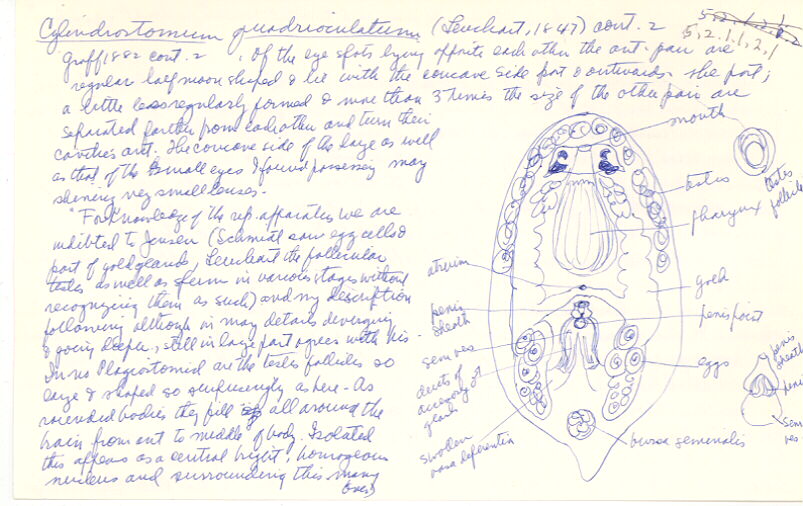 Cylindrostomum quadrioculatum (Leuckart, 1847) cont. 2
5, 2, 1, 1, 2, 1
Graff 1882 cont. 2 , Of the eye spots lying opposite each other the ant. pair are
regular half moon shaped & lie with the concave side post & outwards. The post;
a little less regularly formed & more than 3 times the size of the other pair are
separated farther from each other and turn their
cavities ant. The concave side of the large as well
as that of the small eyes I found possessing may
shining very small lenses.
"For knowledge of the rep. apparatus we are
indebted to Jensen (Schmidt saw egg cells &
part of yolk glands, Leuckart the follicular
testes as well as sperm in various stages without
recognizing them as such) and my description
following although in many details diverging
& going deeper, still in large part agrees with his.
In no Plagiostomid are the testes follicles so
large & shaped so surprisingly as here. As
rounded bodies they fill all around the
brain from ant to middle of body. Isolated
this appears as a central bright, homogeneous
nucleus and surrounding this many
(over)
mouth
testes
testes follicle
pharynx
atrium
yolk
penis sheath
penis point
sem ves
eggs
ducts of accessory glands
swollen vasa deferentia
bursa seminalis
penis sheath
penis
sem ves